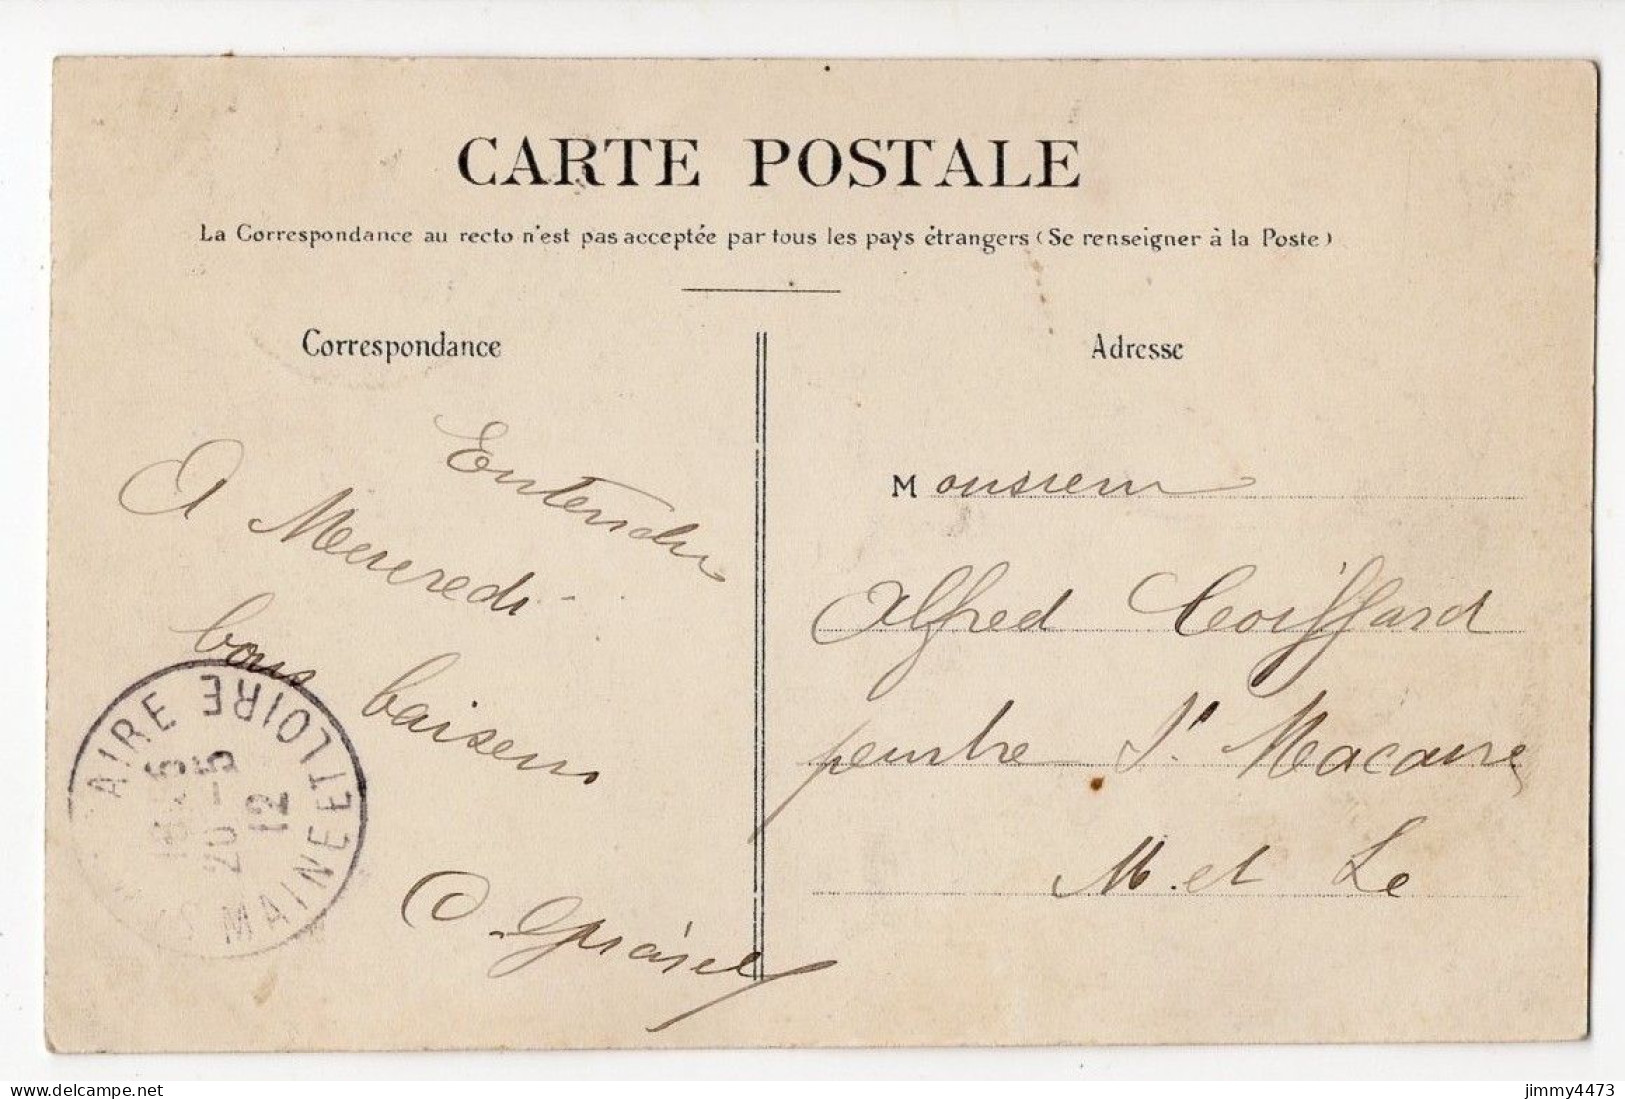 CARTE POSTALE
La Correspondance au recto n'est pas acceptée par tous les pays étrangers (Se renseigner à la Poste)
Correspondance
Entendu
A Mercredi
bons baisers
Adresse
Monsieur
Alfred Coiffard
peintre St Macaire
M. et Le
AIRE MAINE ET LOIRE
20 - 5
12
delcampe.net
jimmy4473